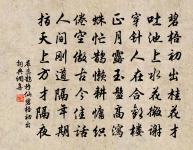 碧梧初出桂花才
吐池上水花微謝
穿針人在合歡樓
正月露玉盤高瀉
蛛忙鵲懶耕慵織
倦空做古今佳話
人間剛道隔年期
指天上方才隔夜
嚴蕊鵲橋仙碧梧初出